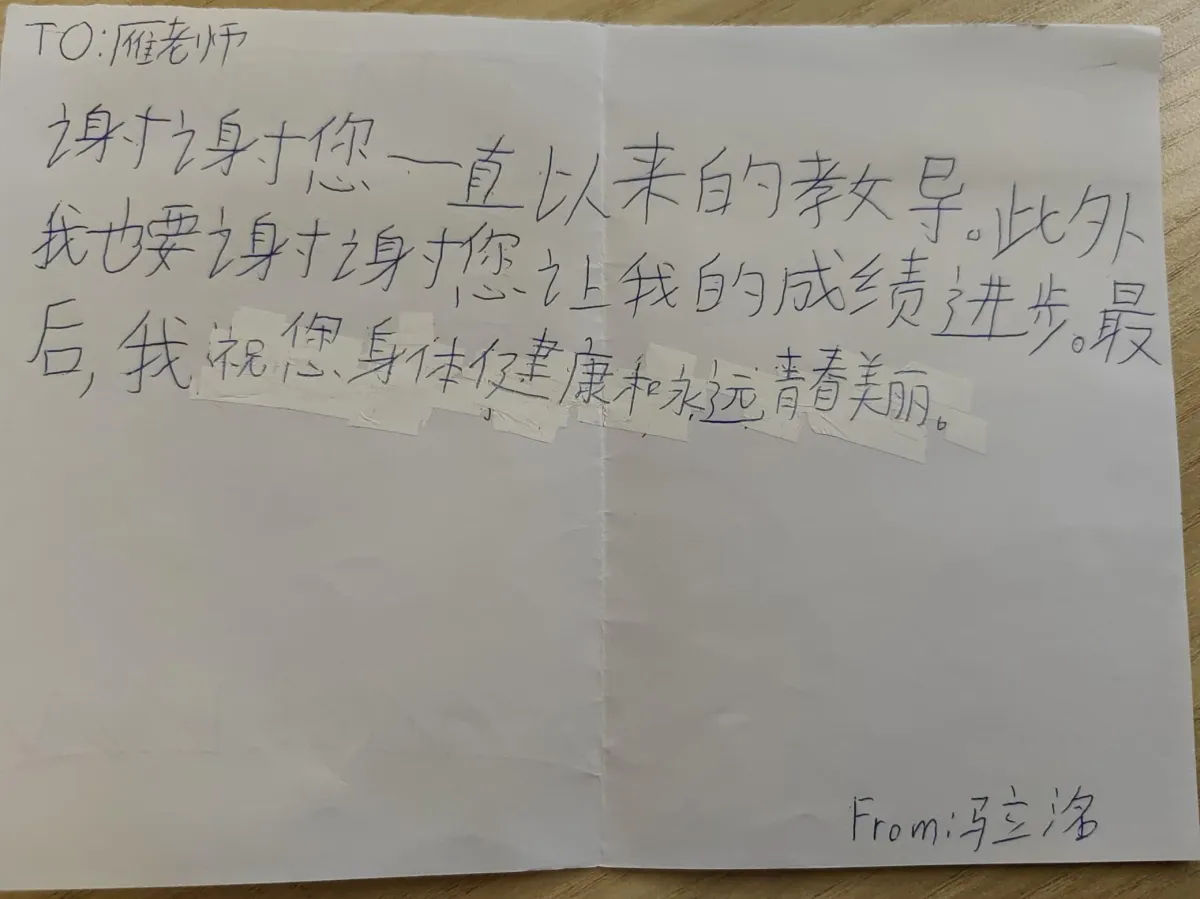 TO:雁老师
谢谢您一直以来的教导。此外
我也要谢谢您让我的成绩进步。最
后,我祝您身体健康和永远青春美丽。
From:冯立洺